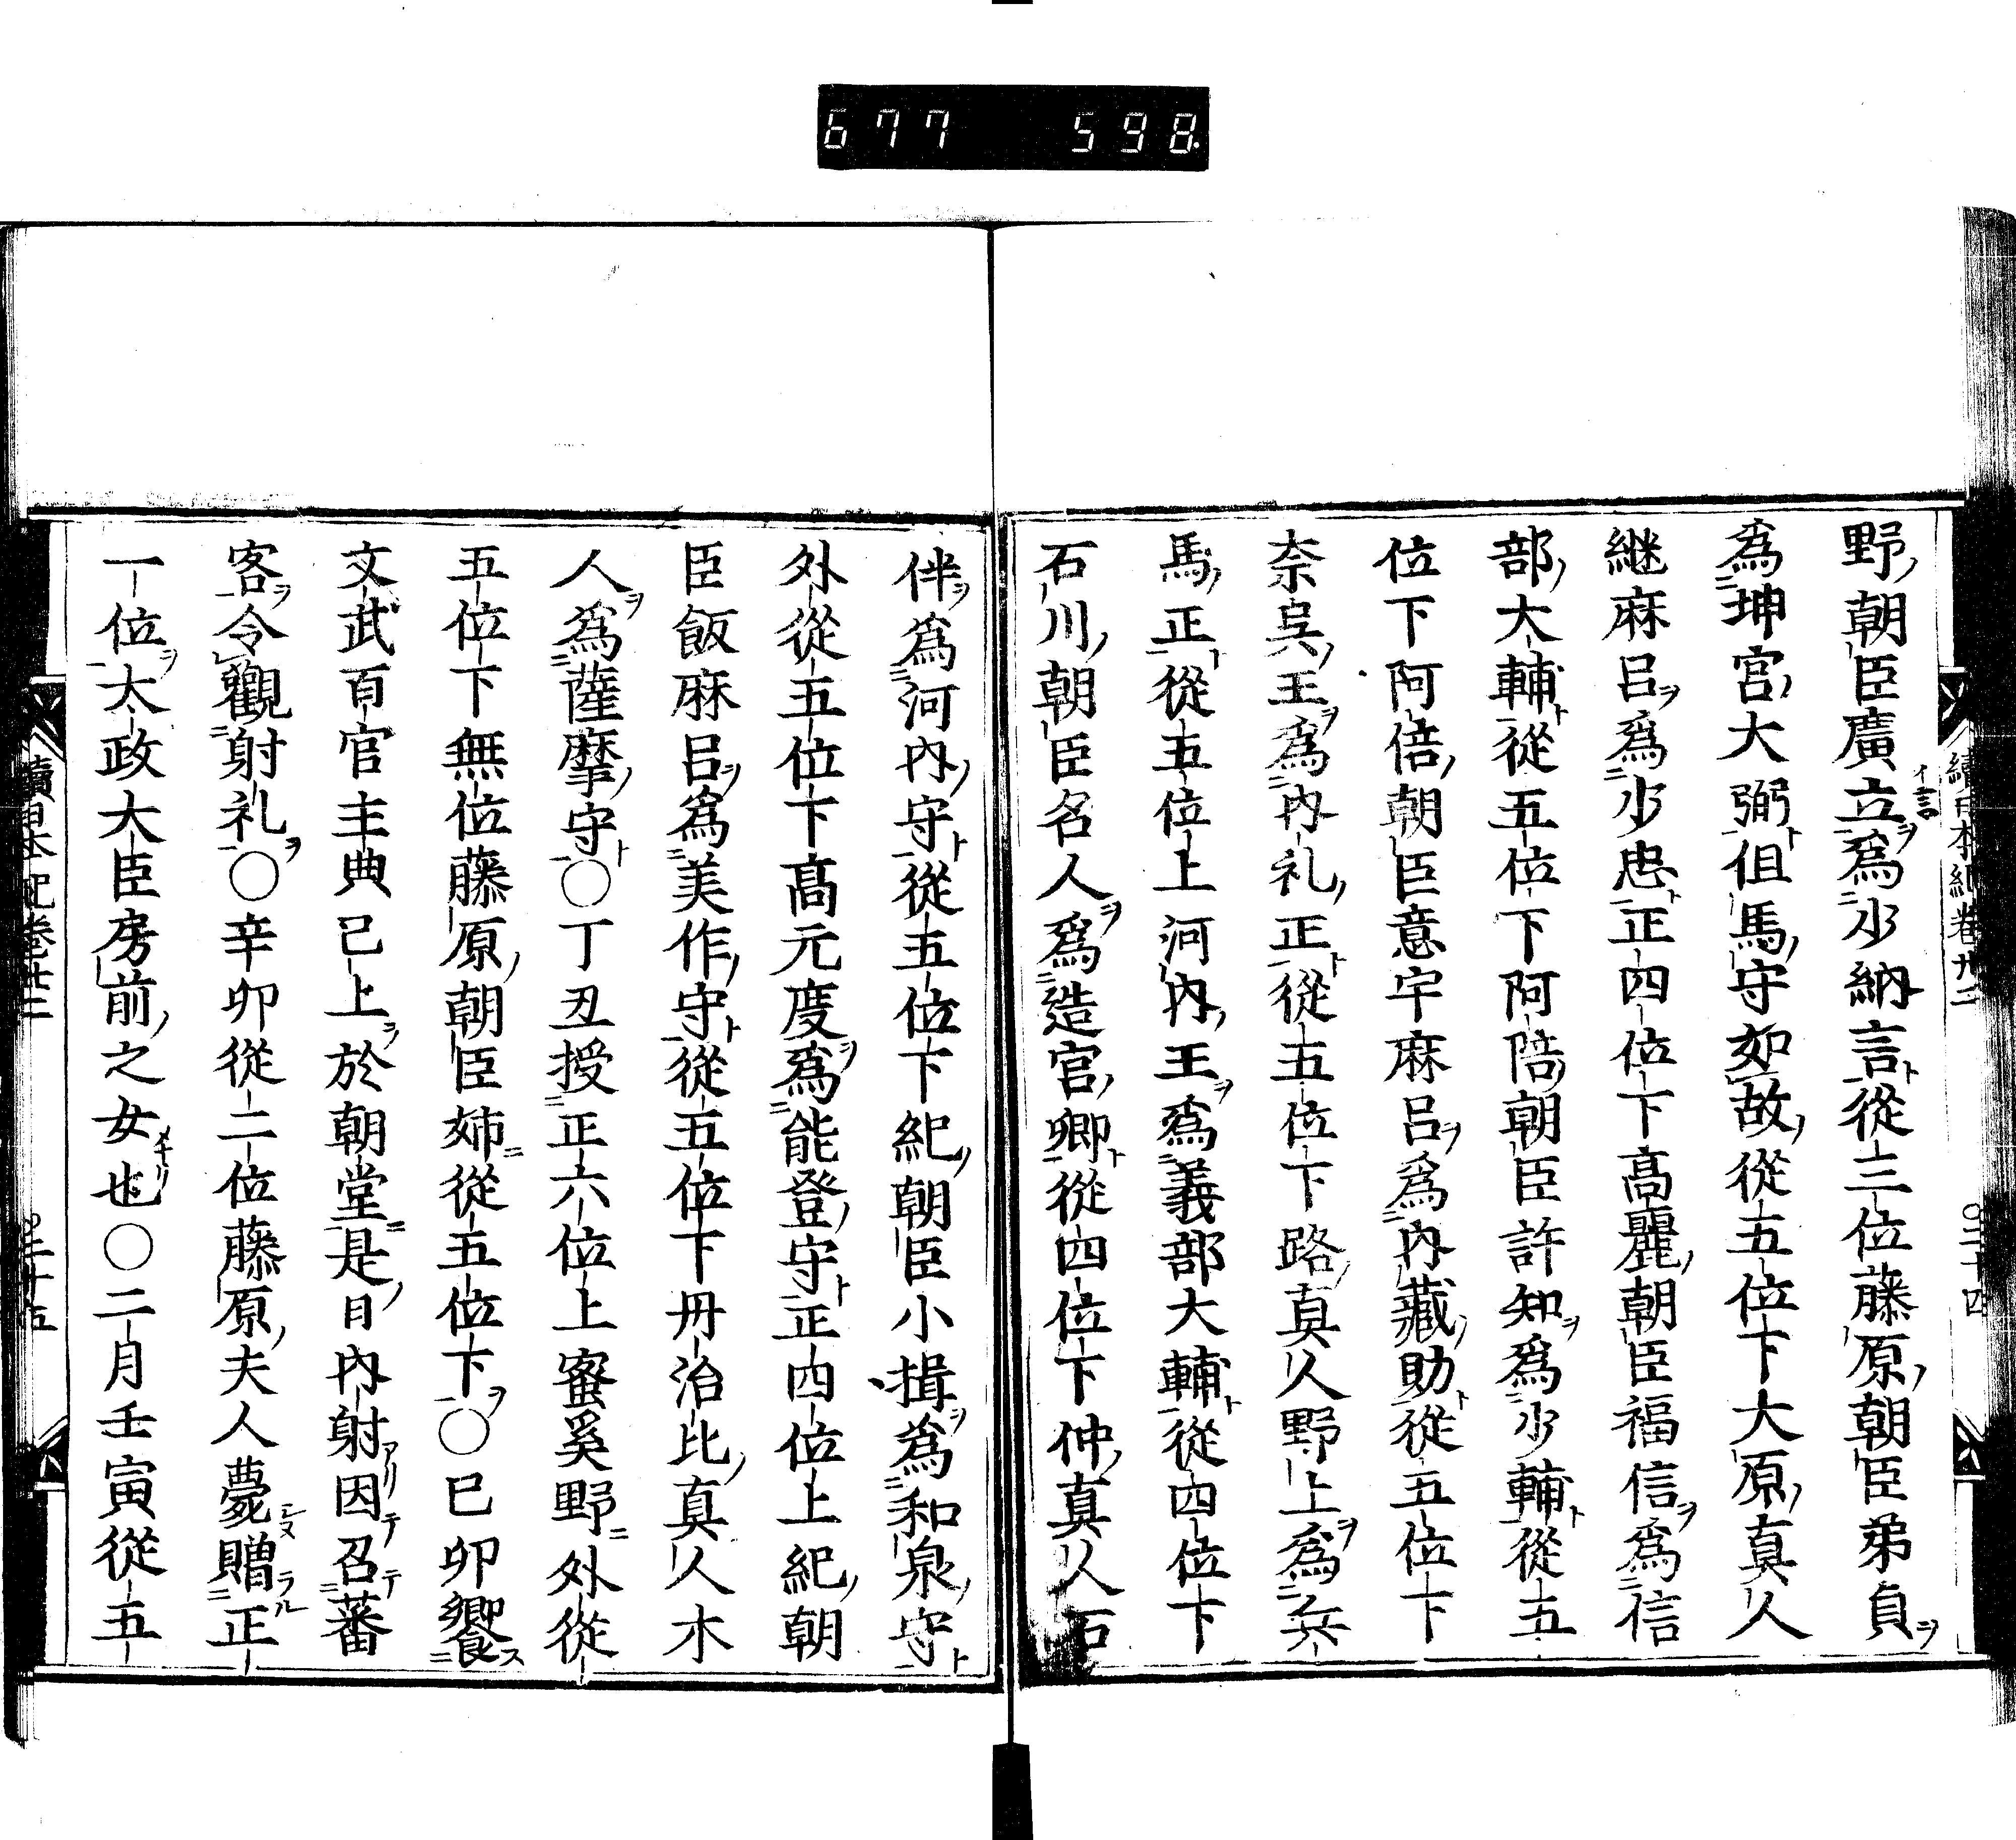 677 598
續日本紀卷廿二 ○三十四
野朝臣廣立爲少納言從三位藤原朝臣弟貞
イ言
為坤宮大弼伹馬守如故從五位下大原真人
継麻呂爲少忠正四位下髙麗朝臣福信爲信
部大輔從五位下阿陪朝臣許知爲少輔從五
位下阿倍朝臣意宇麻呂爲内藏助從五位下
奈吳王爲内礼正從五位下路真人野上爲兵
馬正從五位上河内王爲義部大輔從四位下
石川朝臣名人爲造宮卿從四位下仲真人石
伴爲河内守從五位下紀朝臣小揖爲和泉守
外從五位下髙元度爲能登守正四位上紀朝
臣飯麻呂爲美作守從五位下丹治比真人木
人爲薩摩守○丁丑授正六位上蜜奚野外從
五位下無位藤原朝臣姉從五位下○巳卯饗
文武百官主典已上於朝堂是日内射因召蕃
客令觀射礼○辛卯從二位藤原夫人薨贈正
一位太政大臣房前之女也○二月壬寅從五
續日本紀卷廿二 ○三十五